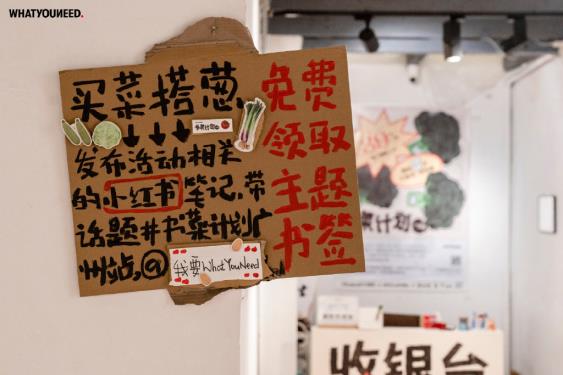 WHATYOUNEED.
买菜搭葱
发布活动相关
的小红书笔记,带
话题#书菜计划广
州站,@
我要WhatYouNeed
免费
领取
主题
书签
菜计划
收银台